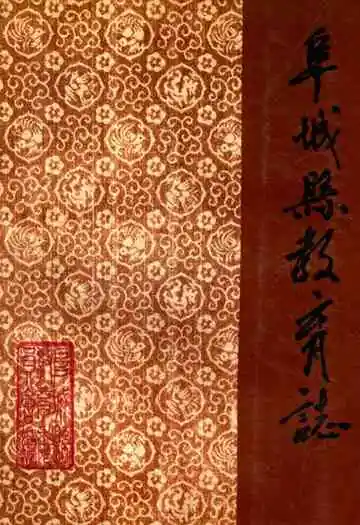 阜城縣教育誌